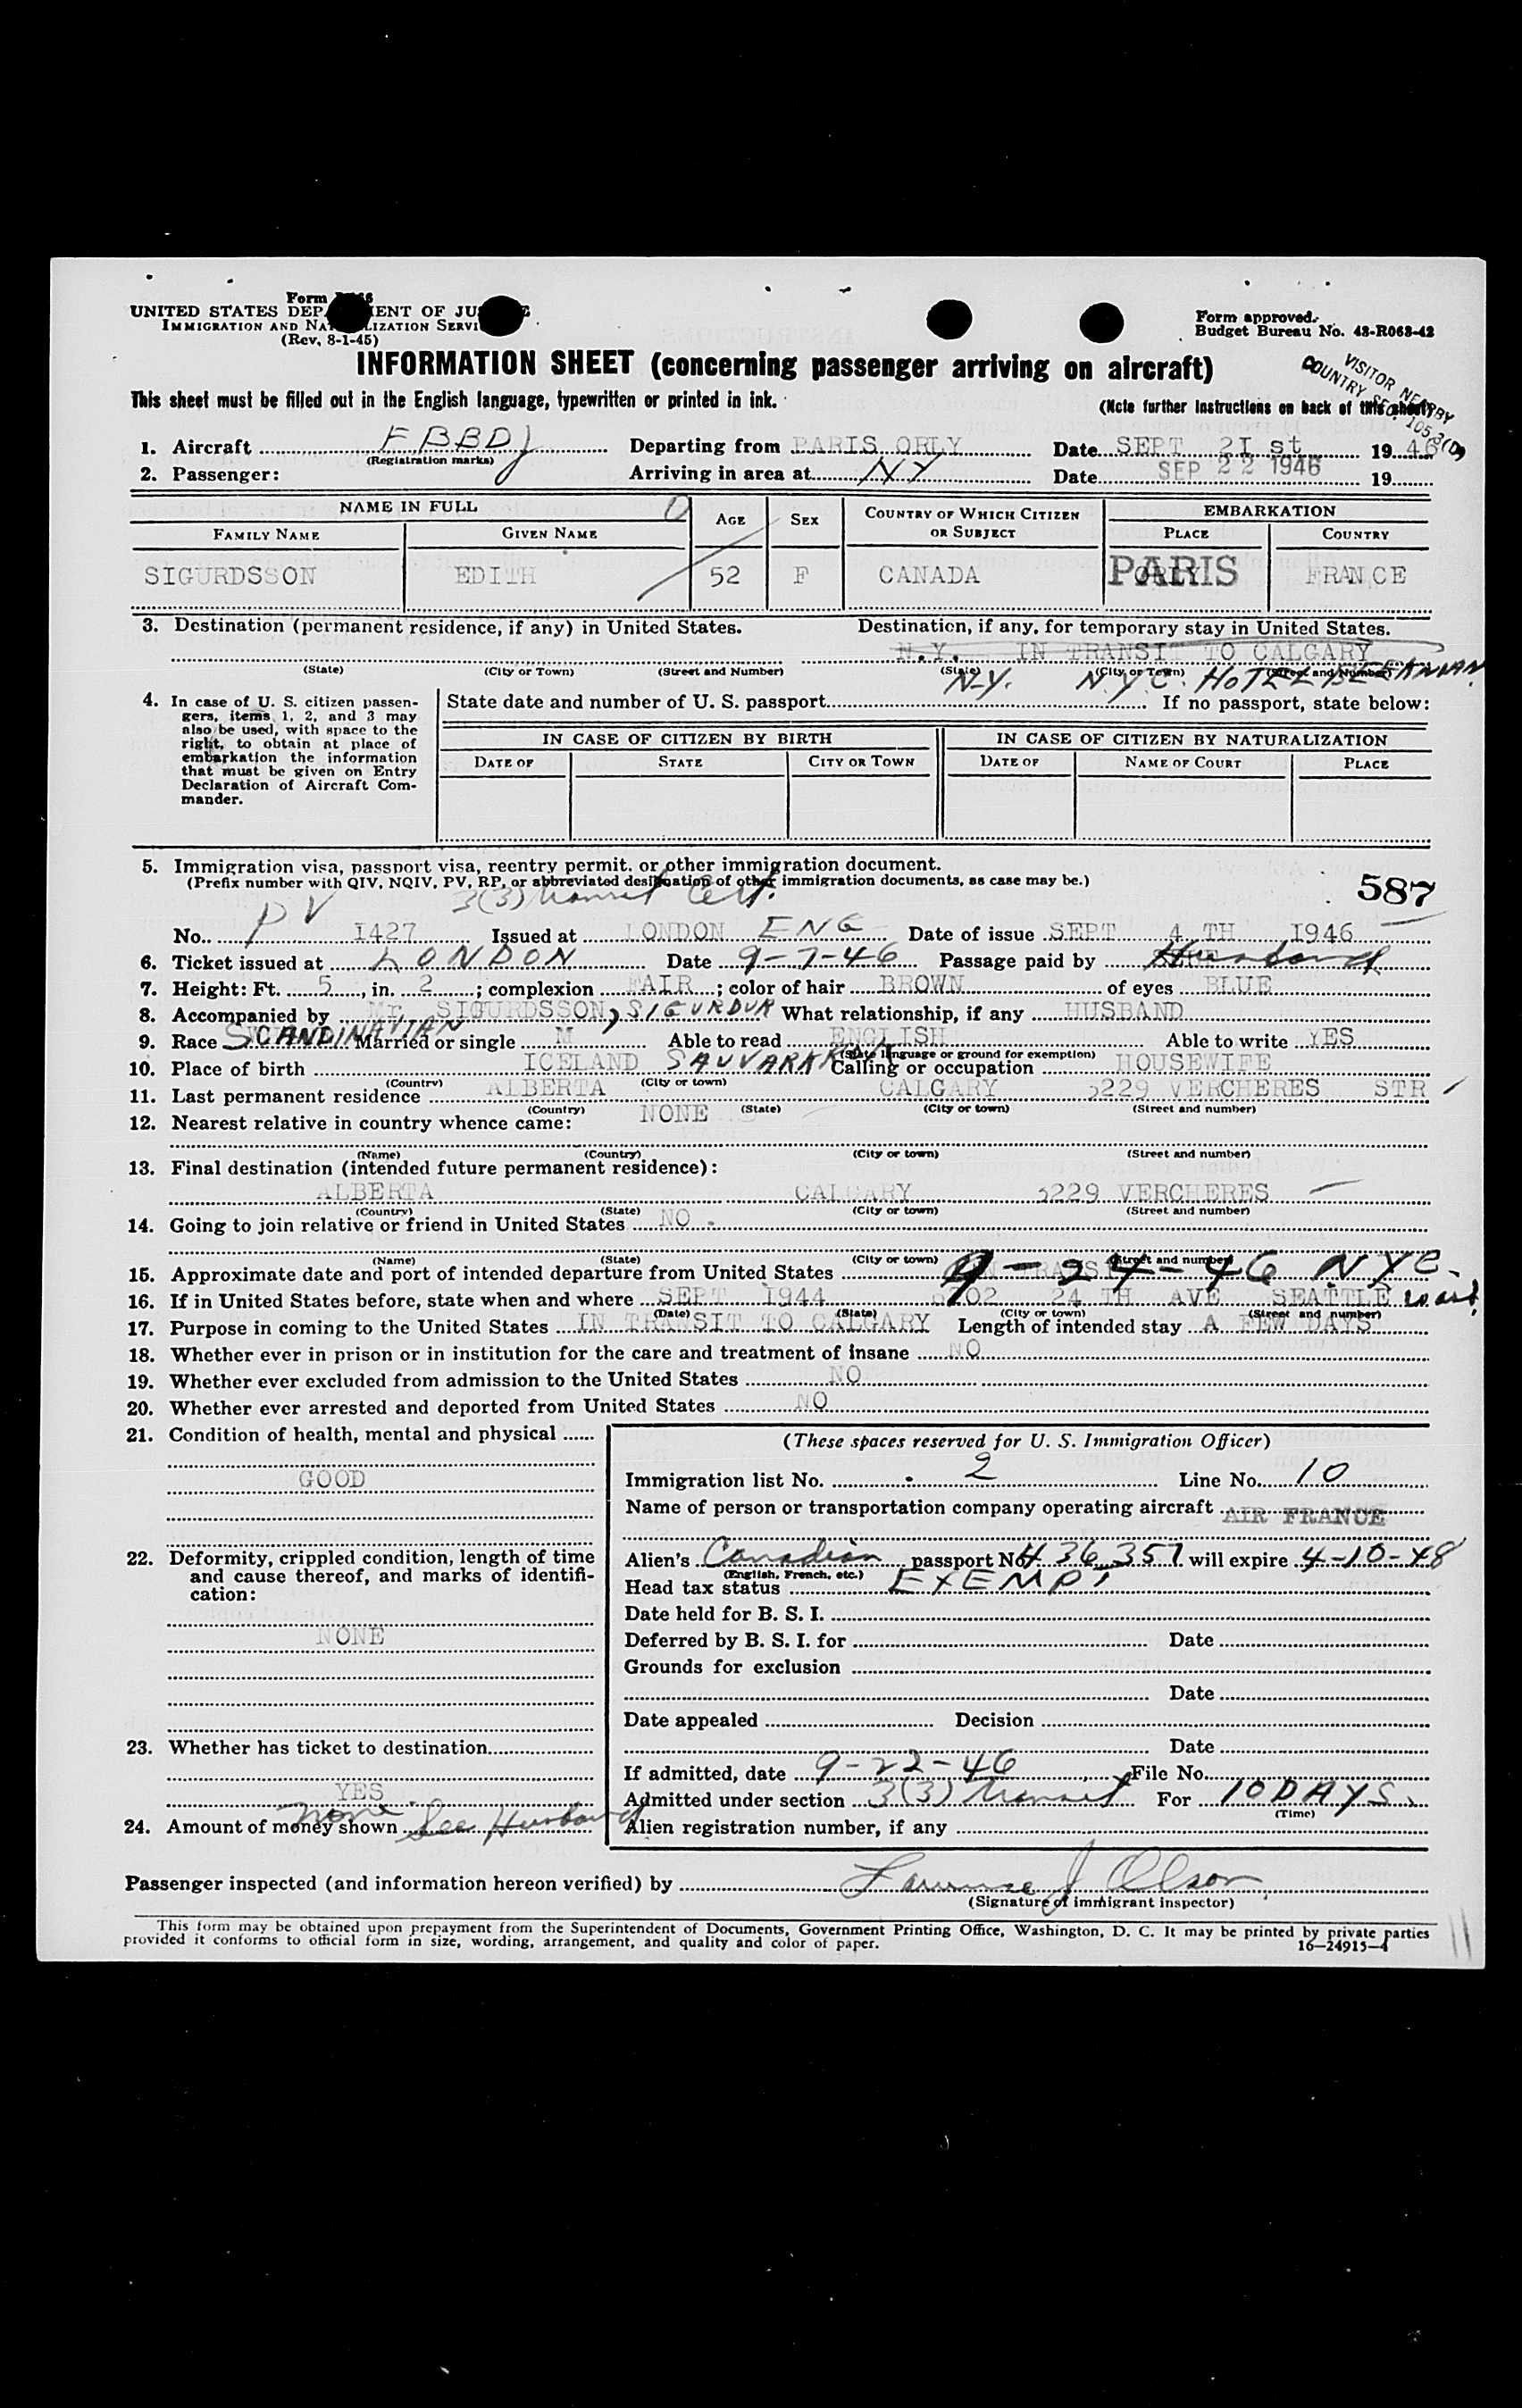 Form
UNITED STATES DEPARTMENT OF JUSTICE
IMMIGRATION AND NATURALIZATION SERVICE
(Rev. 8-1-45)
Form approved.
Budget Bureau No. 43-R063-42
INFORMATION SHEET (concerning passenger arriving on aircraft)
VISITOR NEARBY
COUNTRY SEC. 105.3(D)
This sheet must be filled out in the English language, typewritten or printed in ink.
(Note further instructions on back of this sheet)
1. Aircraft FBBDJ Departing from PARIS ORLY Date SEPT 2I st 19 46
(Registration marks)
2. Passenger: Arriving in area at NY Date SEP 22 1946 19
NAME IN FULL AGE SEX COUNTRY OF WHICH CITIZEN OR SUBJECT EMBARKATION
FAMILY NAME GIVEN NAME PLACE COUNTRY
SIGURDSSON EDITH 52 F CANADA PARIS FRANCE
3. Destination (permanent residence, if any) in United States. Destination, if any, for temporary stay in United States.
N.Y. IN TRANSIT TO CALGARY
(State) (City or Town) (Street and Number) (State) (City or Town) (Street and Number)
N.Y. N.Y.C. HOTEL BEEKMAN
4. In case of U. S. citizen passen-
gers, items 1, 2, and 3 may
also be used, with space to the
right, to obtain at place of
embarkation the information
that must be given on Entry
Declaration of Aircraft Com-
mander.
State date and number of U. S. passport If no passport, state below:
IN CASE OF CITIZEN BY BIRTH IN CASE OF CITIZEN BY NATURALIZATION
DATE OF STATE CITY OR TOWN DATE OF NAME OF COURT PLACE
5. Immigration visa, passport visa, reentry permit, or other immigration document.
(Prefix number with QIV, NQIV, PV, RP, or abbreviated designation of other immigration documents, as case may be.)
587
3(3) Transit Cert.
No. PV I427 Issued at LONDON ENG Date of issue SEPT 4 TH I946
6. Ticket issued at LONDON Date 9-7-46 Passage paid by Husband
7. Height: Ft. 5, in. 2; complexion FAIR; color of hair BROWN of eyes BLUE
8. Accompanied by MR SIGURDSSON, SIGURDUR What relationship, if any HUSBAND
9. Race SCANDINAVIAN Married or single M Able to read ENGLISH Able to write YES
(State language or ground for exemption)
10. Place of birth ICELAND Calling or occupation HOUSEWIFE
(Country) (City or town)
11. Last permanent residence ALBERTA CALGARY 3229 VERCHERES STR
(Country) (State) (City or town) (Street and number)
12. Nearest relative in country whence came: NONE
(Name) (Country) (City or town) (Street and number)
13. Final destination (intended future permanent residence):
ALBERTA CALGARY 3229 VERCHERES
(Country) (State) (City or town) (Street and number)
14. Going to join relative or friend in United States NO
(Name) (State) (City or town) (Street and number)
15. Approximate date and port of intended departure from United States 9-24-46 NYC.
16. If in United States before, state when and where SEPT 1944 24 TH AVE SEATTLE
(Date) (State) (City or town) (Street and number)
17. Purpose in coming to the United States IN TRANSIT TO CALGARY Length of intended stay A FEW DAYS
18. Whether ever in prison or in institution for the care and treatment of insane NO
19. Whether ever excluded from admission to the United States NO
20. Whether ever arrested and deported from United States NO
21. Condition of health, mental and physical
GOOD
22. Deformity, crippled condition, length of time
and cause thereof, and marks of identifi-
cation:
NONE
23. Whether has ticket to destination
YES
none.
24. Amount of money shown See Husband
(These spaces reserved for U. S. Immigration Officer)
Immigration list No. 2 Line No. 10
Name of person or transportation company operating aircraft AIR FRANCE
Alien's Canadian passport No. 4 36 357 will expire 4-10-48
(English, French, etc.)
Head tax status EXEMPT
Date held for B. S. I.
Deferred by B. S. I. for Date
Grounds for exclusion
Date
Date appealed Decision
Date
If admitted, date 9-22-46 File No.
Admitted under section 3(3) Transit For 10 DAYS.
(Time)
Alien registration number, if any
Passenger inspected (and information hereon verified) by Lawrence J Olson
(Signature of immigrant inspector)
This form may be obtained upon prepayment from the Superintendent of Documents, Government Printing Office, Washington, D. C. It may be printed by private parties
provided it conforms to official form in size, wording, arrangement, and quality and color of paper.
16—24915-4